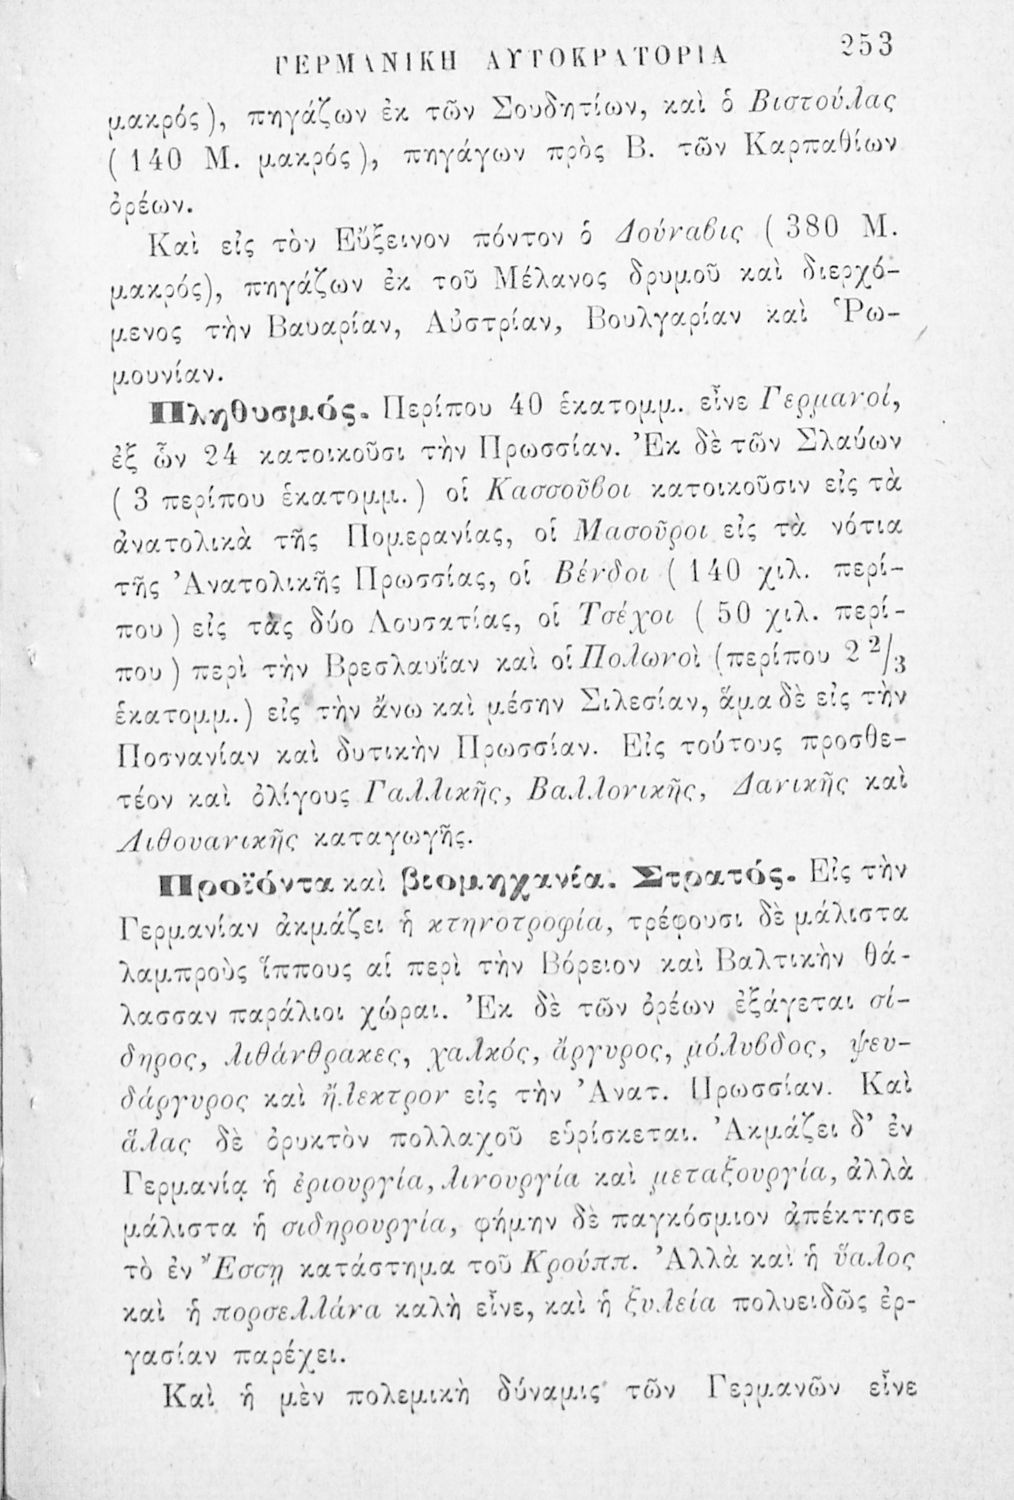 ΓΕΡΜΑΝΙΚΗ ΑΥΤΟΚΡΑΤΟΡΙΑ 253
μακρός), πηγάζων ἐκ τῶν Σουδητίων, καὶ ὁ Βιστούλας
(140 Μ. μακρός), πηγάγων πρὸς Β. τῶν Καρπαθίων
ὀρέων.
Καὶ εἰς τὸν Εὔξεινον πόντον ὁ Δούναβις (380 Μ.
μακρός), πηγάζων ἐκ τοῦ Μέλανος δρυμοῦ καὶ διερχό-
μενος τὴν Βαυαρίαν, Αὐστρίαν, Βουλγαρίαν καὶ Ῥω-
μουνίαν.
Πληθυσμός. Περίπου 40 ἑκατομμ. εἶνε Γερμανοί,
ἐξ ὧν 24 κατοικοῦσι τὴν Πρωσσίαν. Ἐκ δὲ τῶν Σλαύων
(3 περίπου ἑκατομμ.) οἱ Κασσοῦβοι κατοικοῦσιν εἰς τὰ
ἀνατολικὰ τῆς Πομερανίας, οἱ Μασοῦροι εἰς τὰ νότια
τῆς Ἀνατολικῆς Πρωσσίας, οἱ Βένδοι (140 χιλ. περί-
που) εἰς τὰς δύο Λουσατίας, οἱ Τσέχοι (50 χιλ. περί-
που) περὶ τὴν Βρεσλαυΐαν καὶ οἱ Πολωνοὶ (περίπου 2 2/3
ἑκατομμ.) εἰς τὴν ἄνω καὶ μέσην Σιλεσίαν, ἅμα δὲ εἰς τὴν
Ποσνανίαν καὶ δυτικὴν Πρωσσίαν. Εἰς τούτους προσθε-
τέον καὶ ὀλίγους Γαλλικῆς, Βαλλονικῆς, Δανικῆς καὶ
Λιθουανικῆς καταγωγῆς.
Προϊόντα καὶ βιομηχανία. Στρατός. Εἰς τὴν
Γερμανίαν ἀκμάζει ἡ κτηνοτροφία, τρέφουσι δὲ μάλιστα
λαμπροὺς ἵππους αἱ περὶ τὴν Βόρειον καὶ Βαλτικὴν θά-
λασσαν παράλιοι χώραι. Ἐκ δὲ τῶν ὀρέων ἐξάγεται σί-
δηρος, λιθάνθρακες, χαλκός, ἄργυρος, μόλυβδος, ψευ-
δάργυρος καὶ ἤλεκτρον εἰς τὴν Ἀνατ. Πρωσσίαν. Καὶ
ἅλας δὲ ὀρυκτὸν πολλαχοῦ εὑρίσκεται. Ἀκμάζει δ' ἐν
Γερμανίᾳ ἡ ἐριουργία, λινουργία καὶ μεταξουργία, ἀλλὰ
μάλιστα ἡ σιδηρουργία, φήμην δὲ παγκόσμιον ἀπέκτησε
τὸ ἐν Ἔσσῃ κατάστημα τοῦ Κρούππ. Ἀλλὰ καὶ ἡ ὕαλος
καὶ ἡ πορσελλάνα καλὴ εἶνε, καὶ ἡ ξυλεία πολυειδῶς ἐρ-
γασίαν παρέχει.
Καὶ ἡ μὲν πολεμικὴ δύναμις τῶν Γερμανῶν εἶνε